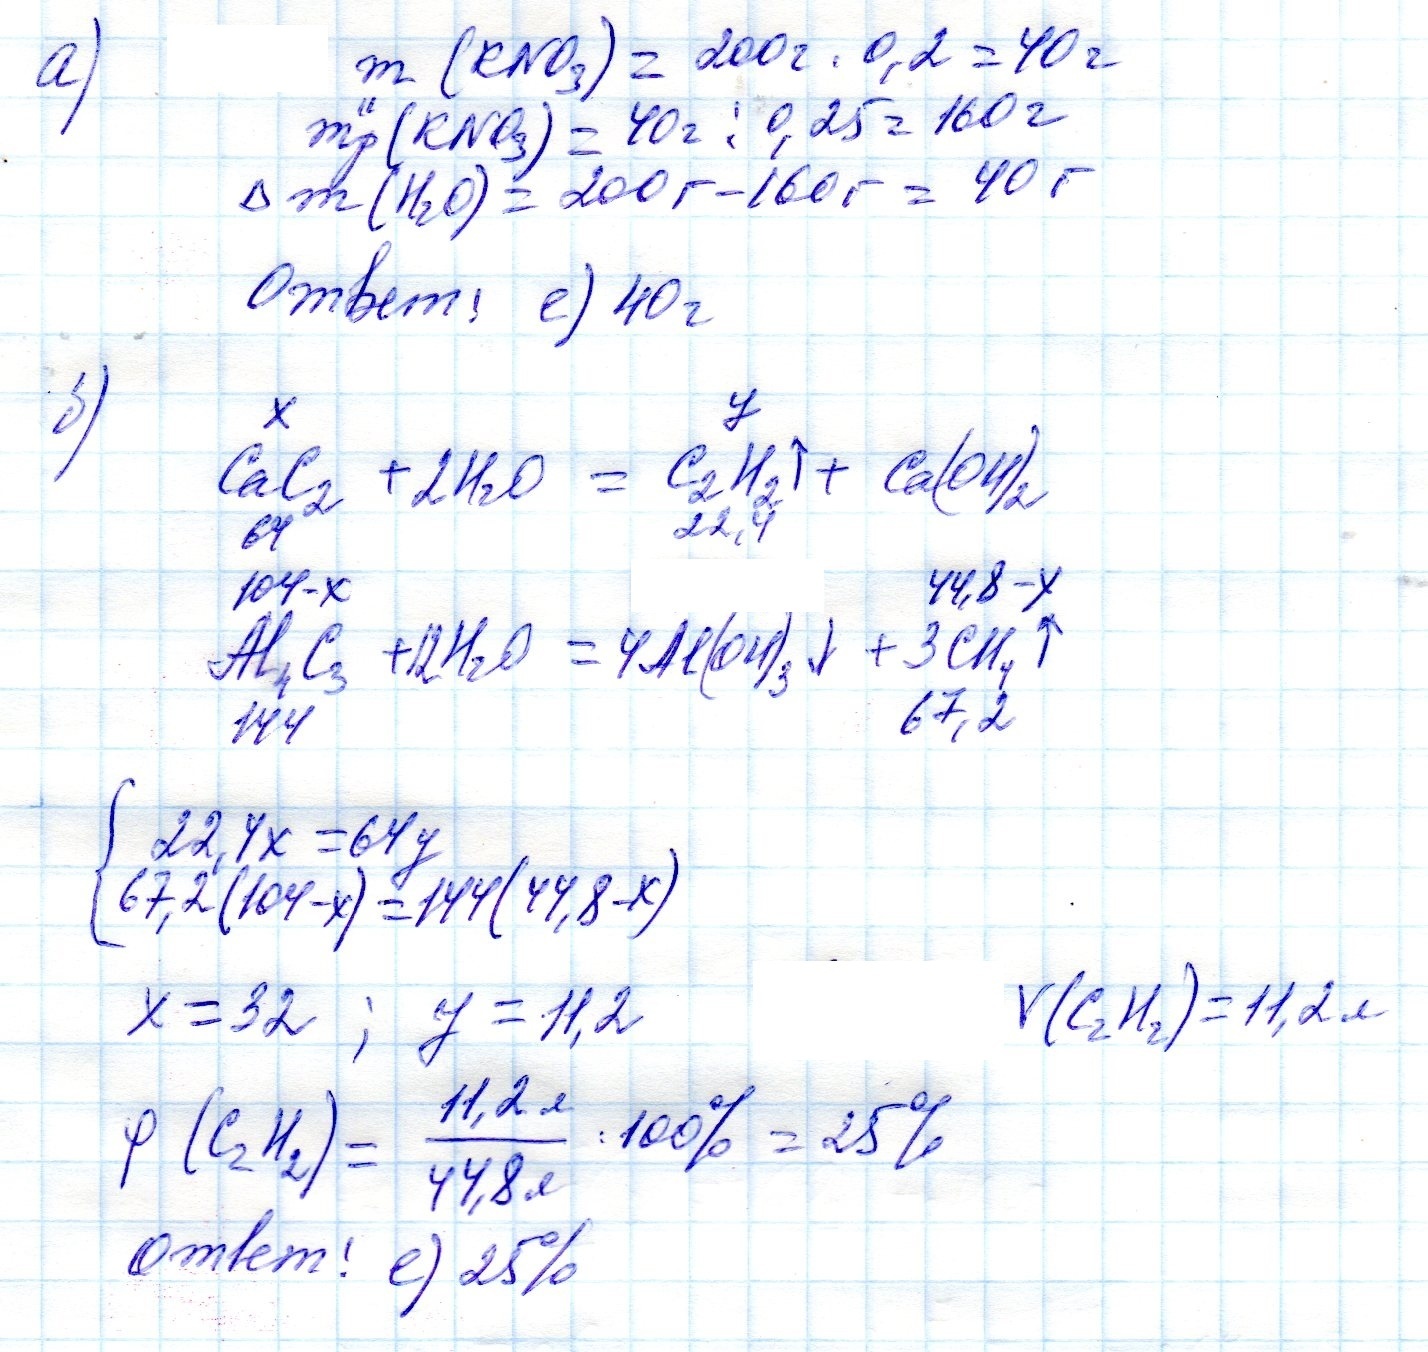 а) m (KNO₃) = 200г · 0,2 = 40г
mр"(KNO₃) = 40г : 0,25 = 160г
Δm(H₂O) = 200г - 160г = 40г
Ответ: е) 40г
б)
x y
CaC₂ + 2H₂O = C₂H₂↑ + Ca(OH)₂
64 22,4
104-x 44,8-y
Al₄C₃ + 12H₂O = 4Al(OH)₃↓ + 3CH₄↑
144 67,2
{ 22,4x = 64y
67,2(104-x) = 144(44,8-x)
x = 32 ; y = 11,2 V(C₂H₂) = 11,2л
φ (C₂H₂) = 11,2л / 44,8л · 100% = 25%
Ответ: е) 25%